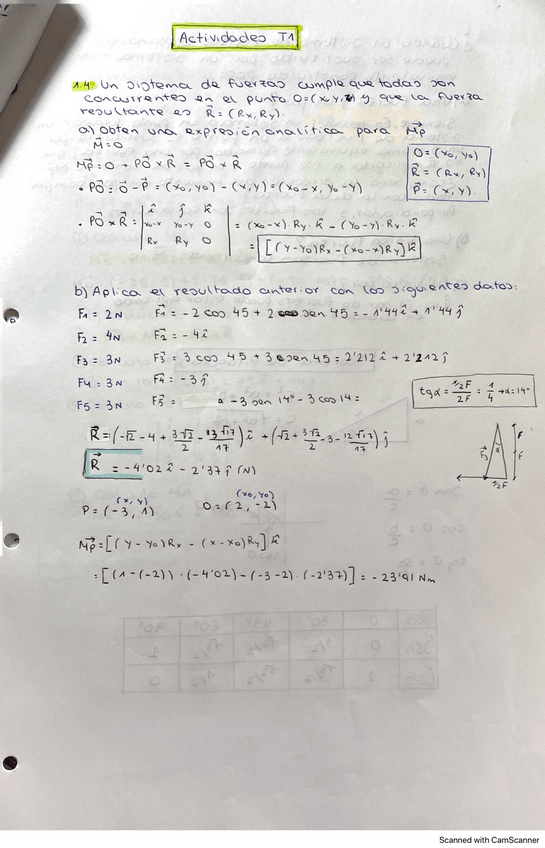 Actividades T1
1.4. Un sistema de fuerzas cumple que todas son
concurrentes en el punto O=(x,y,z) y que la fuerza
resultante es R⃗ = (Rx, Ry).
a) Obten una expresión analítica para M⃗p
M⃗=0
M⃗p = 0 + PO⃗ × R⃗ = PO⃗ × R⃗
O = (x0, y0)
R⃗ = (Rx, Ry)
P⃗ = (x, y)
• PO⃗ = O⃗ - P⃗ = (x0, y0) - (x, y) = (x0 - x, y0 - y)
• PO⃗ × R⃗ = | î ĵ k̂ |
| x0-x y0-y 0 | = (x0-x) Ry · k̂ - (y0-y) · Rx · k̂
| Rx Ry 0 | = [(y-y0)Rx - (x0-x)Ry] k̂
b) Aplica el resultado anterior con los siguientes datos:
F1 = 2N F⃗1 = -2 cos 45 + 2 sen 45 = -1'44 î + 1'44 ĵ
F2 = 4N F⃗2 = -4 î
F3 = 3N F⃗3 = 3 cos 45 + 3 sen 45 = 2'212 î + 2'212 ĵ
F4 = 3N F⃗4 = -3 ĵ
F5 = 3N F⃗5 = -3 sen 14° - 3 cos 14 =
tg α = 1/2F / 2F = 1/4 → α = 14°
R⃗ = (-√2 - 4 + 3√2/2 - 3√17/17) î + (√2 + 3√2/2 - 3 - 12√17/17) ĵ
R⃗ = -4'02 î - 2'37 ĵ (N)
F⃗5 α F F 1/2F
(x, y) (x0, y0)
P = (-3, 1) O = (2, -2)
M⃗p = [(y - y0) Rx - (x - x0) Ry] k̂
= [(1-(-2)) · (-4'02) - (-3-2) · (-2'37)] = -23'91 Nm
Scanned with CamScanner